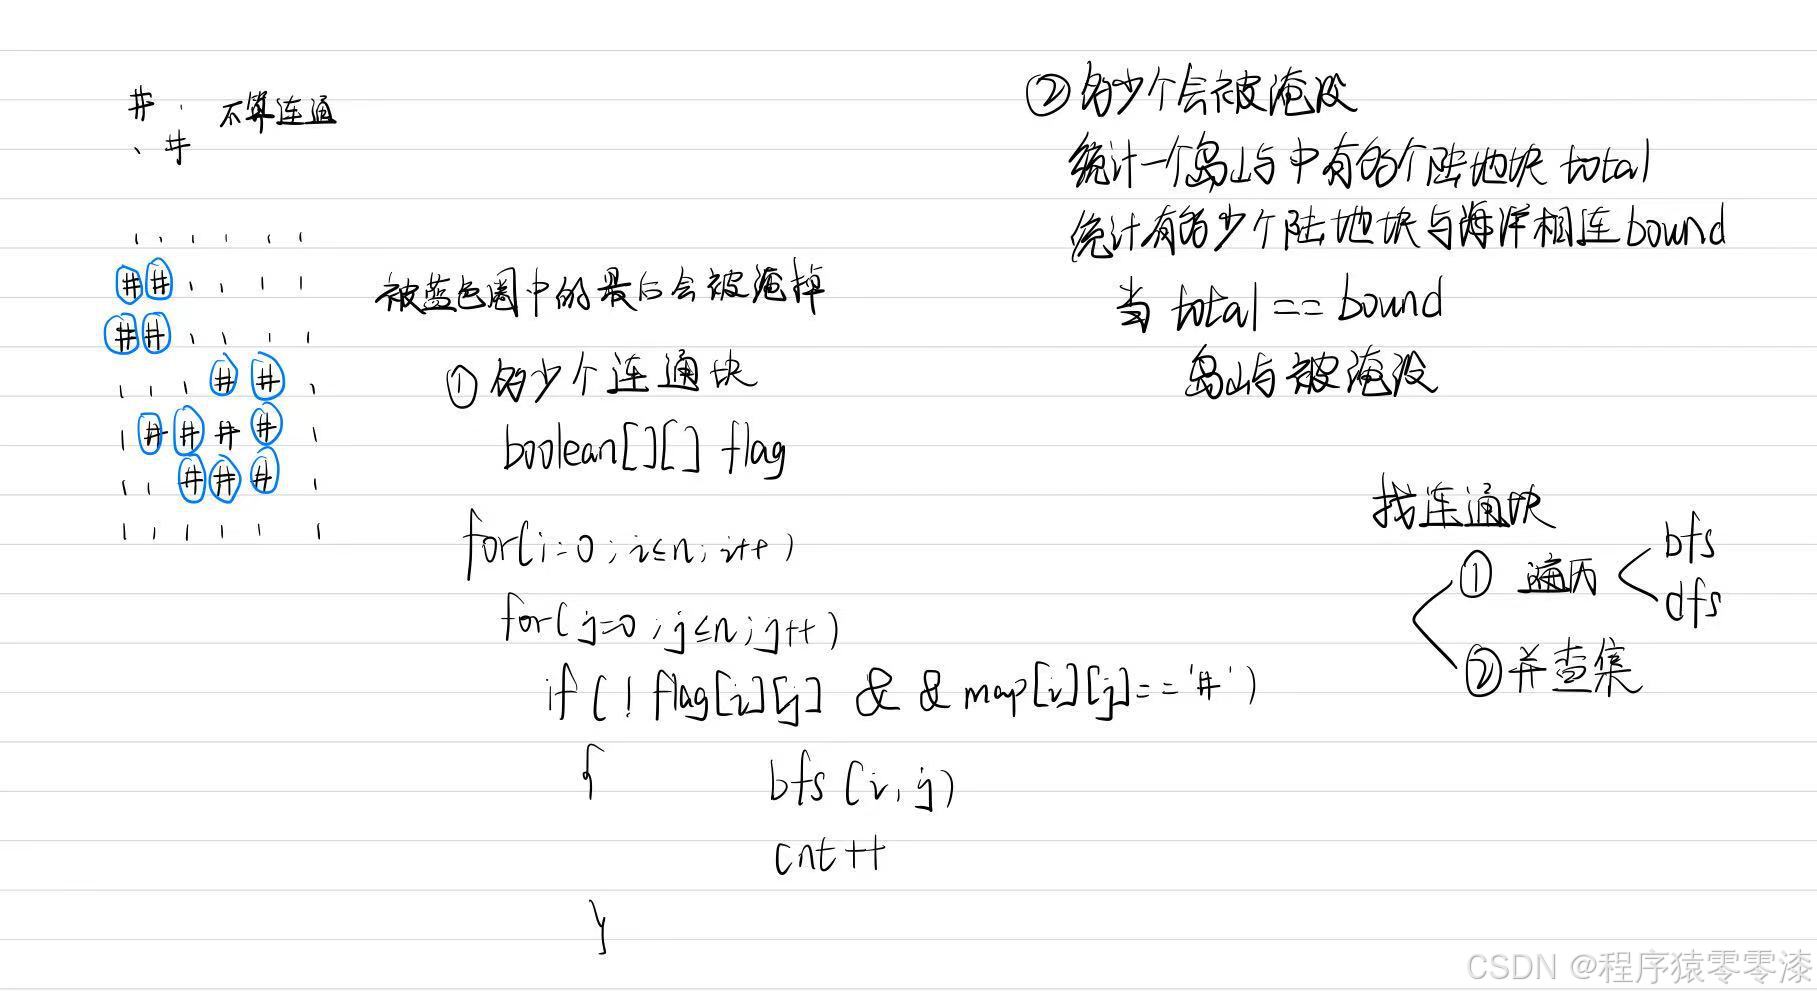 # .
. # 不算连通
. . . . . .
# # . . . .
# # . . . .
. . . # # .
. # # # # .
. . # # # .
. . . . . .
被蓝色圈中的最后会被淹掉
① 多少个连通块
boolean[][] flag
for(i=0;i≤n;i++)
for(j=0;j≤n;j++)
if(!flag[i][j] && map[i][j]=='#')
{ bfs(i,j)
cnt++
}
② 多少个会被淹没
统计一个岛屿中有多个陆地块 total
统计有多少个陆地块与海洋相连bound
当 total == bound
岛屿被淹没
找连通块
① 遍历 bfs
dfs
② 并查集
CSDN @程序猿零零漆